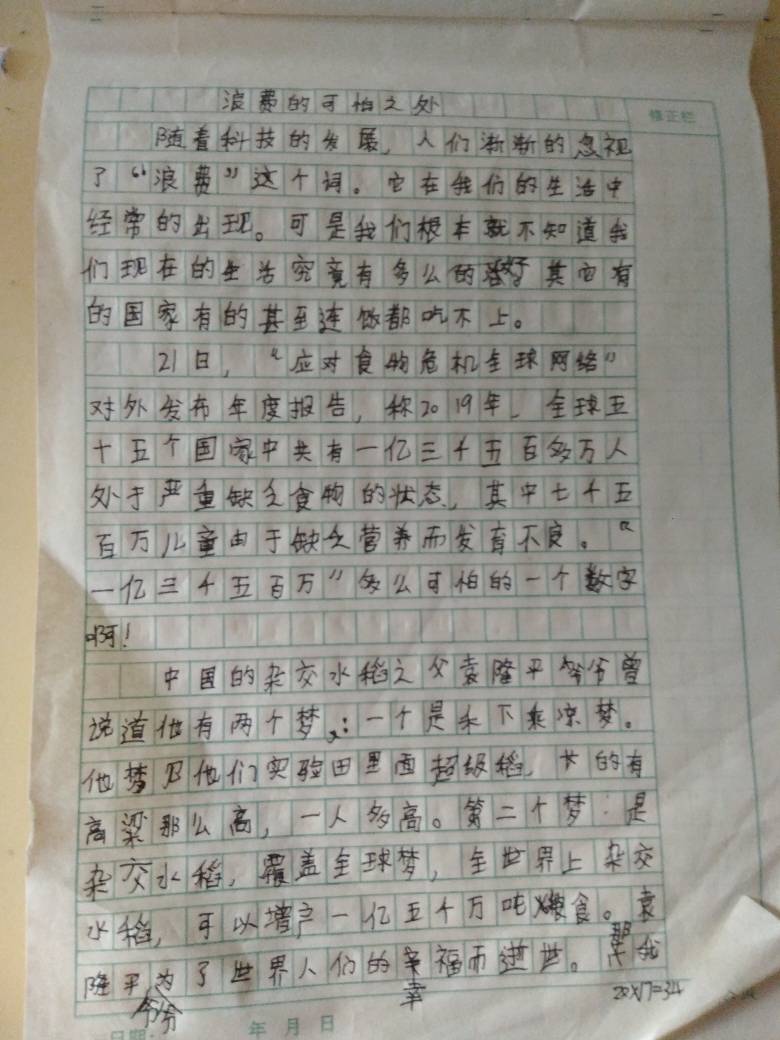 浪费的可怕之处
修正栏
随着科技的发展，人们渐渐的忽视
了“浪费”这个词。它在我们的生活中
经常的出现。可是我们根本就不知道我
们现在的生活究竟有多么的好其它有
的国家有的甚至连饭都吃不上。
21日，“应对食物危机全球网络”
对外发布年度报告，称2019年，全球五
十五个国家中共有一亿三千五百多万人
处于严重缺乏食物的状态，其中七千五
百万儿童由于缺乏营养而发育不良。“
一亿三千五百万”多么可怕的一个数字
啊！
中国的杂交水稻之父袁隆平爷爷曾
说道他有两个梦：一个是禾下乘凉梦。
他梦见他们实验田里面超级稻，长的有
高粱那么高，一人多高。第二个梦：是
杂交水稻，覆盖全球梦，全世界上杂交
水稻，可以增产一亿五千万吨粮食。袁
隆平爷爷为了世界人们的幸福而逝世。那我
20×17=34
年 月 日